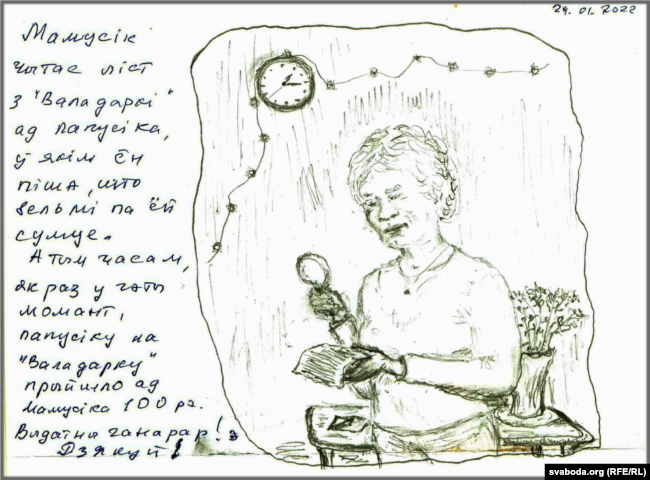 24.01.2022
Мамусік
чытае ліст
з "Валадаркі"
ад папусіка,
ў якім ён
піша, што
вельмі па ёй
сумуе.
А тым часам,
як раз у гэты
момант,
папусіку на
"Валадарку"
прыйшло ад
мамусіка 100 рэ.
Выдатны ганарар!
Дзякуй!
svaboda.org (RFE/RL)